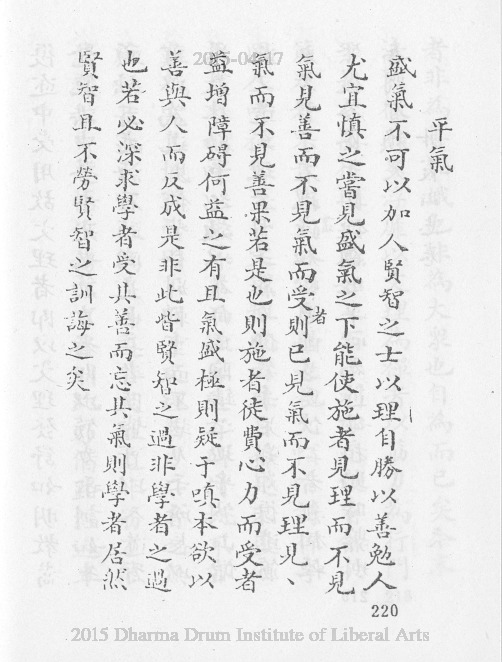 平氣
盛氣不可以加人賢智之士以理自勝以善勉人
尤宜慎之嘗見盛氣之下能使施者見理而不見
氣見善而不見氣而受者則已見氣而不見理見、
氣而不見善果若是也則施者徒費心力而受者
益增障碍何益之有且氣盛極則疑于嗔本欲以
善與人而反成是非此皆賢知之過非學者之過
也若必深求學者受其善而忘其氣則學者居然
賢智且不勞賢智之訓誨之矣
220
2015 Dharma Drum Institute of Liberal Arts